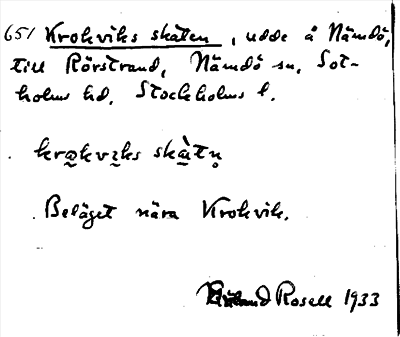 651 Krokviks skäten, udde å Nämdö,
till Rörstrand, Nämdö sn, Sot-
holms hd. Stockholms l.
krokviks skàtn̥
Beläget nära Krokvik.
Rosell 1933